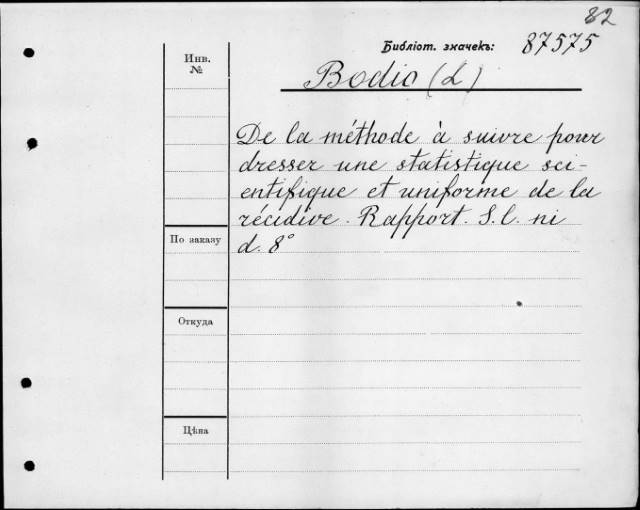 82
Библіот. значекъ: 87575
Инв.
№
Bodio (L)
De la méthode à suivre pour
dresser une statistique sci-
entifique et uniforme de la
récidive. Rapport. S. l. ni
d. 8°
По заказу
Откуда
Цѣна